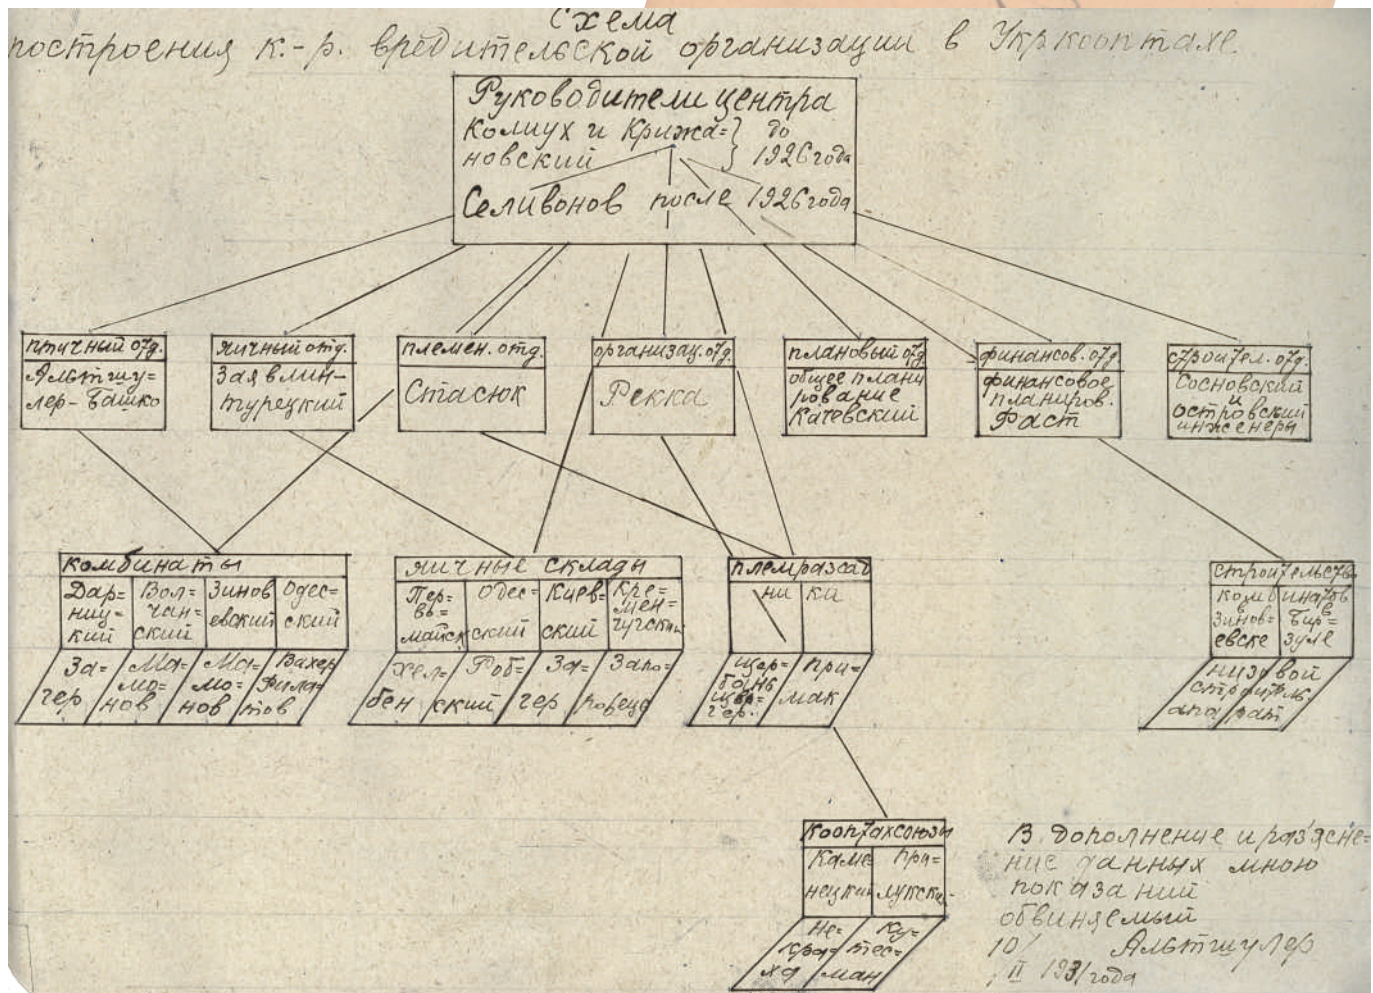 Схема
построения к.-р. вредительской организации в Укркооптахе
Руководители центра
Колиух и Крижа=
новский
до
1926 года
Селивонов после 1926 года
птичный отд.
Альтшу=
лер - Башко
яичный отд.
Заявлин-
турецкий
племен. отд.
Стасюк
организац. отд.
Рекка
плановый отд
общее плани
рование
Качевский
финансов. отд
финансовое
планиров.
Фаст
строител. отд.
Сосновский
и
островский
инженеры
комбинаты
Дар=
ниц=
кий
Вол=
чан=
ский
Зинов
евский
Одес=
ский
За=
гер
Ма=
мо=
нов
Ма=
мо=
нов
Вахер
Фила=
тов
яичные склады
Пер=
во=
майск
Одес=
ский
Киев=
ский
Кре=
мен=
чугский
Хел=
бен
Роб=
ский
За=
гер
Запо=
племразсад
ни ка
Щер=
бань
при=
мак
строительств
комбинатов
в
Зинов=
евске
в
Бир=
зуле
низовой
строитель
апарат
Кооптахсоюзы
Каме
нецкий
при=
лукски
Не=
кра=
ха
Ку=
тес=
ман
В дополнение и раз'ясне=
ние данных мною
показаний
обвиняемый
10/ Альтшулер
II 1931 года